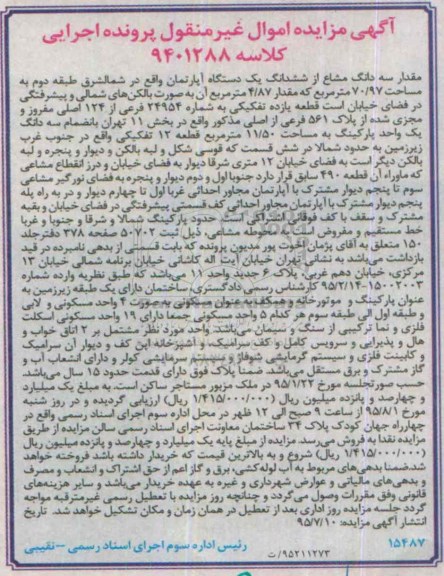 آگهی مزایده اموال غیرمنقول پرونده اجرایی
کلاسه ۹۴۰۱۲۸۸
مقدار سه دانگ مشاع از ششدانگ یک دستگاه آپارتمان واقع در شمالشرق طبقه دوم به
مساحت ۷۰/۹۷ مترمربع که مقدار ۴/۸۷ مترمربع آن به صورت بالکن‌های شمالی و پیشرفتگی
در فضای خیابان است قطعه یازده تفکیکی به شماره ۲۴۹۵۴ فرعی از ۱۲۴ اصلی مفروز و
مجزی شده از پلاک ۵۶۱ فرعی از اصلی مذکور واقع در بخش ۱۱ تهران بانضمام سه دانگ
یک واحد پارکینگ به مساحت ۱۱/۵۰ مترمربع قطعه ۱۲ تفکیکی واقع در جنوب غرب
زیرزمین به حدود شمالا در شش قسمت که قوسی شکل و لبه بالکن و دیوار و پنجره و لبه
بالکن دیگر است به فضای خیابان ۱۲ متری شرقا دیوار به فضای خیابان و درز انقطاع مشاعی
که ماوراء آن قطعه ۴۹۰ سابق قرار دارد جنوبا اول و دوم دیوار و پنجره به فضای نورگیر مشاعی
سوم تا پنجم دیوار مشترک با آپارتمان مجاور احداثی غربا اول تا چهارم دیوار و در به راه پله
پنجم دیوار مشترک با آپارتمان مجاور احداثی کف قسمتی پیشرفتگی در فضای خیابان و بقیه
مشترک و سقف با کف فوقانی اشتراکی است حدود پارکینگ شمالا و شرقا و جنوبا و غربا
خط مستقیم و مفروض است به محوطه مشاعی، ذیل ثبت ۵۰۷۰۲ صفحه ۳۷۸ دفتر جلد
۱۵۰ متعلق به آقای پژمان اخوت پور مدیون پرونده که بابت قسمتی از بدهی نامبرده در قید
بازداشت می‌باشد به نشانی تهران خیابان آیت اله کاشانی خیابان برنامه شمالی خیابان ۱۳
مرکزی، خیابان دهم غربی پلاک ۶ جدید واحد ۱۱ می‌باشد که طبق نظریه وارده شماره
۱۵۰۰۲۰۰۳-۹۵/۲/۱۴ کارشناس رسمی دادگستری ساختمان دارای یک طبقه زیرزمین به
عنوان پارکینگ و موتورخانه و همکف به عنوان مسکونی به صورت ۴ واحد مسکونی و لابی
و طبقه اول الی طبقه سوم هر کدام ۵ واحد مسکونی جمعا دارای ۱۹ واحد مسکونی اسکلت
فلزی و نما ترکیبی از سنگ و سیمان می‌باشد. واحد مورد نظر مشتمل بر ۲ اتاق خواب و
هال و پذیرایی و سرویس کامل و کف سرامیک و آشپزخانه اپن کف و دیوار آن سرامیک
و کابینت فلزی و سیستم گرمایشی شوفاژ و سیستم سرمایشی کولر و دارای انشعاب آب و
گاز مشترک و برق مستقل می‌باشد. ضمنا پلاک فوق دارای قدمت حدود ۱۵ سال می‌باشد.
حسب صورتجلسه مورخ ۹۵/۱/۲۲ در ملک مزبور مستاجر ساکن است. به مبلغ یک میلیارد
و چهارصد و پانزده میلیون ریال (۱/۴۱۵/۰۰۰/۰۰۰ ریال) ارزیابی گردیده و در روز شنبه
مورخ ۹۵/۸/۱ از ساعت ۹ صبح الی ۱۲ ظهر در محل اداره سوم اجرای اسناد رسمی واقع در
چهارراه جهان کودک پلاک ۳۴ ساختمان معاونت اجرای اسناد رسمی سالن مزایده از طریق
مزایده نقدا به فروش می‌رسد. مزایده از مبلغ پایه یک میلیارد و چهارصد و پانزده میلیون ریال
(۱/۴۱۵/۰۰۰/۰۰۰ ریال) شروع و به بالاترین قیمت که خریدار داشته باشد فروخته خواهد
شد.ضمنا بدهی‌های مربوط به آب لوله‌کشی، برق و گاز اعم از حق اشتراک و انشعاب و مصرف
و بدهی‌های مالیاتی و عوارض شهرداری و غیره به عهده خریدار می‌باشد و سایر هزینه‌های
قانونی وفق مقررات وصول می‌گردد و چنانچه روز مزایده با تعطیل رسمی غیرمترقبه مواجه
گردد جلسه مزایده روز اداری بعد از تعطیل در همان زمان و مکان تشکیل خواهد شد. تاریخ
انتشار آگهی مزایده: ۹۵/۷/۱۰
۱۵۴۸۷ رئیس اداره سوم اجرای اسناد رسمی --نقیبی
۹۵۲۱۱۲۷۳/ت